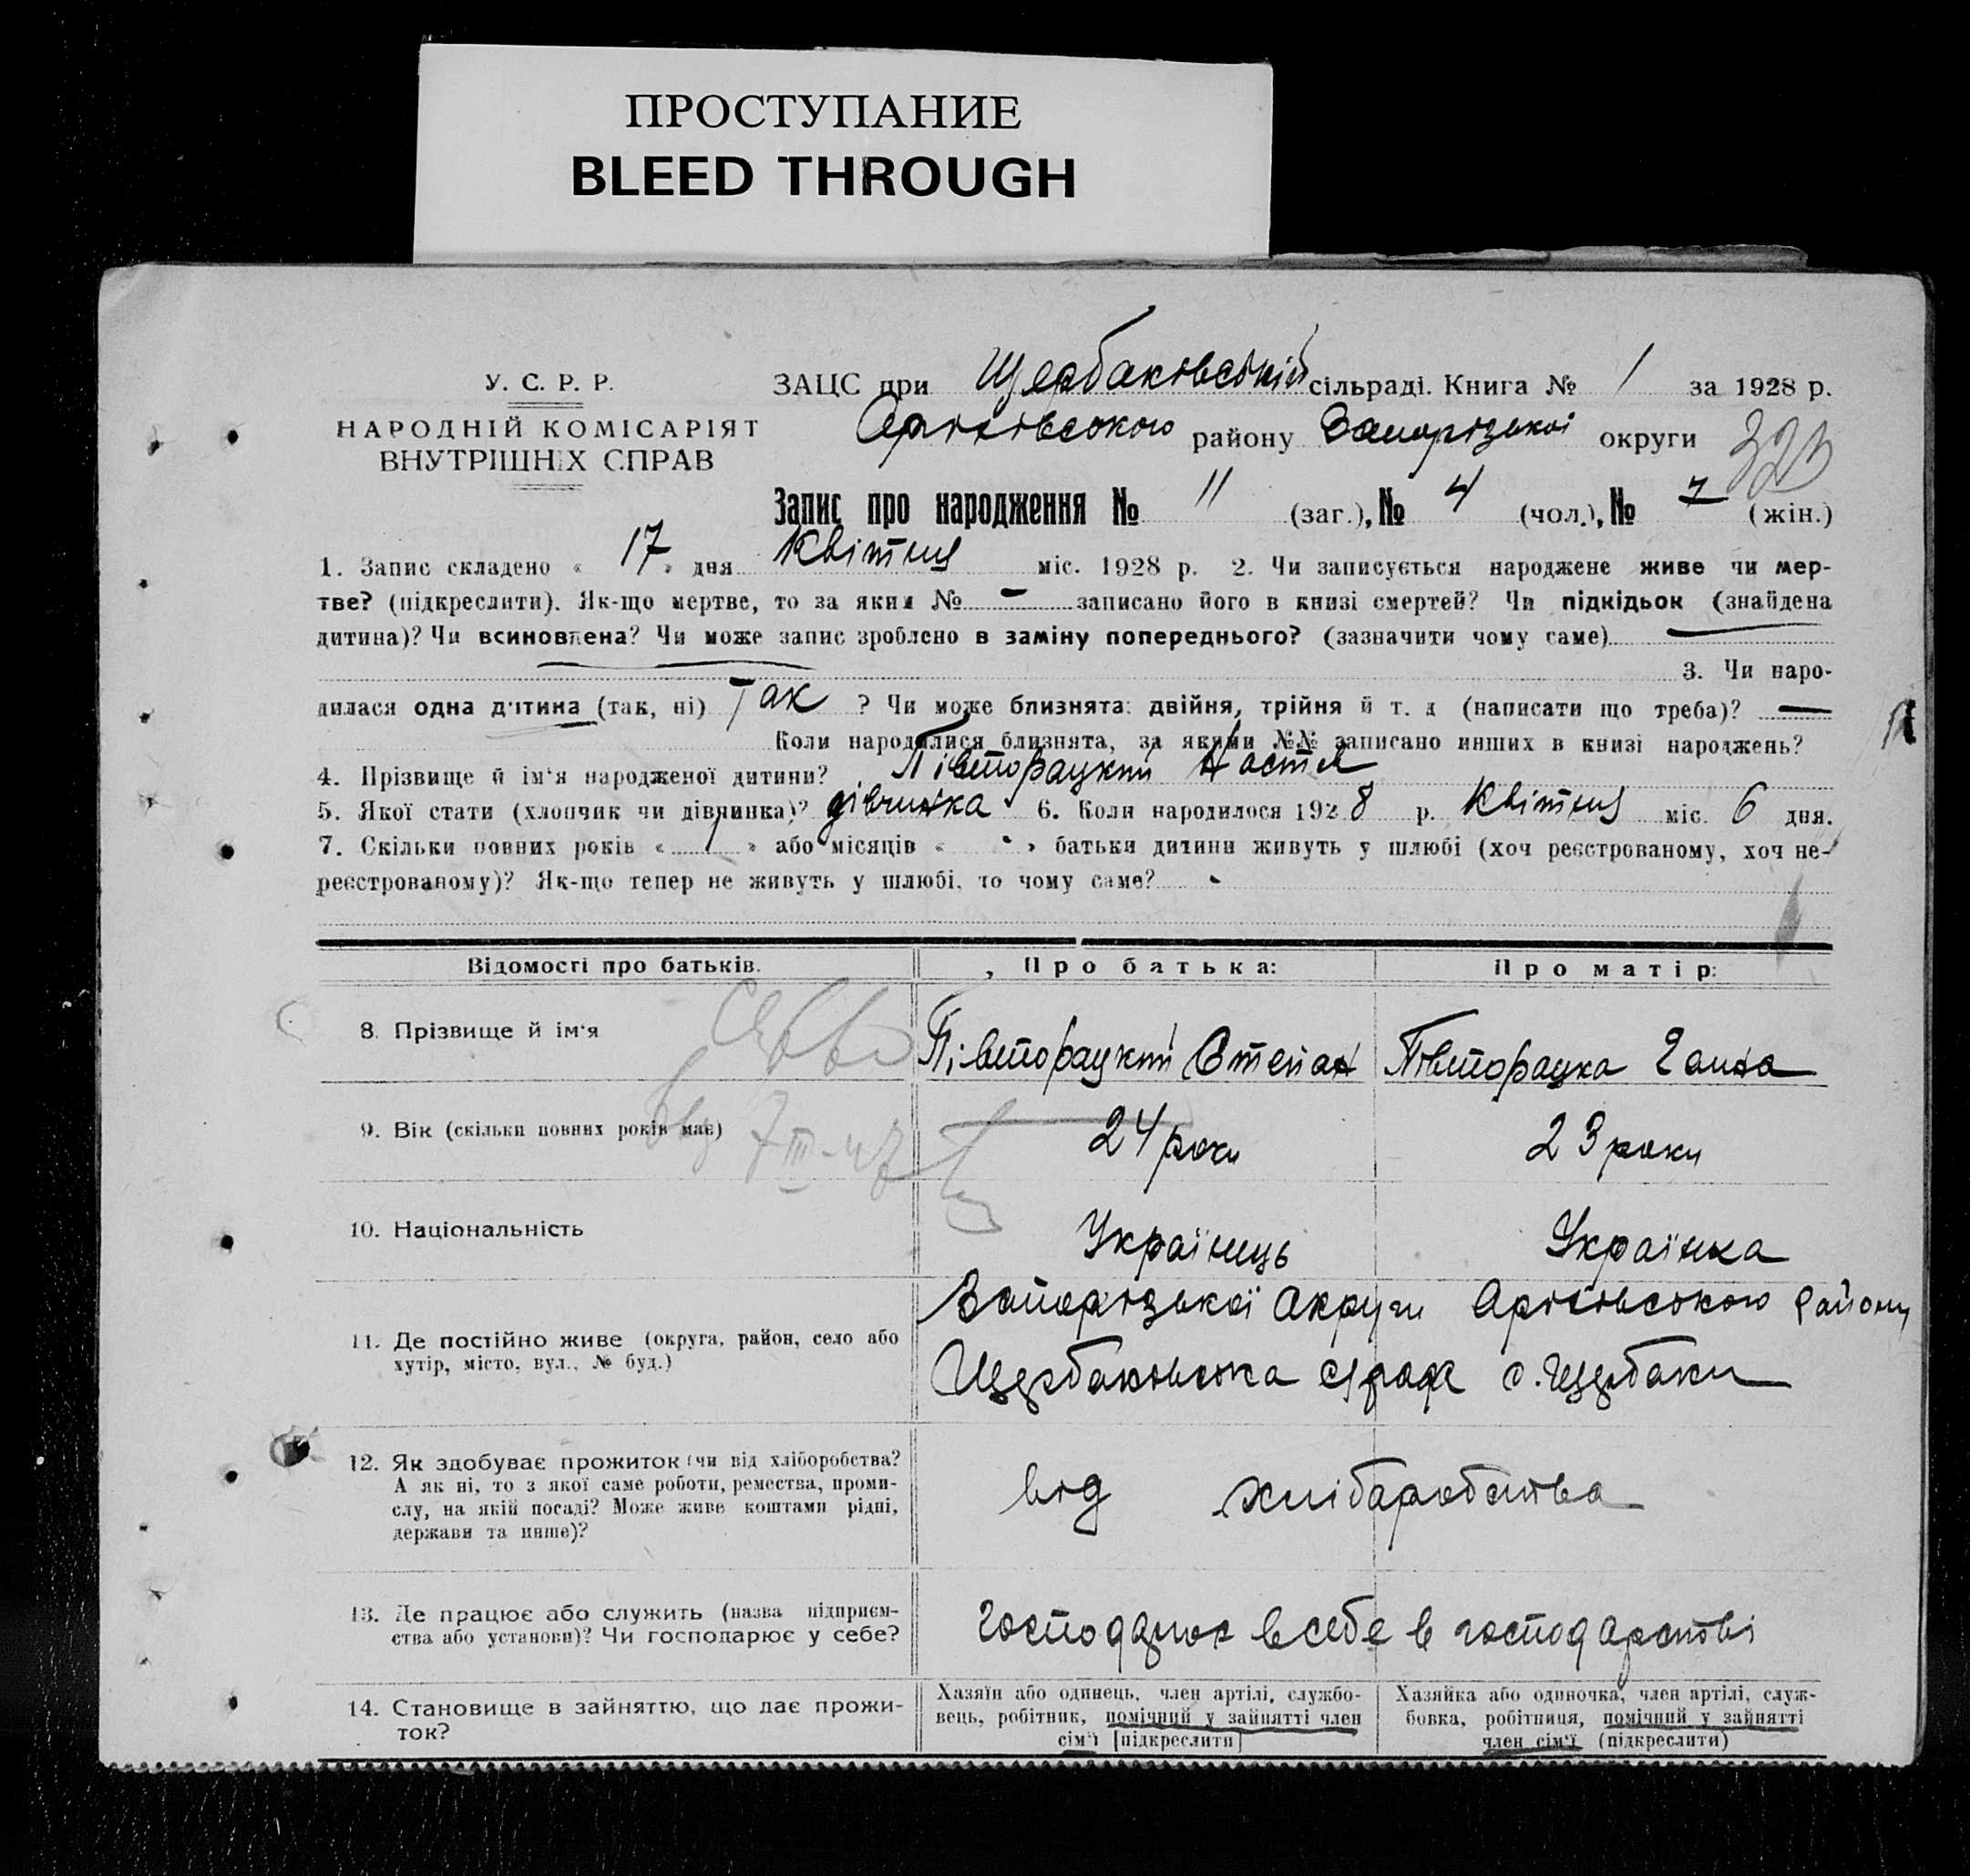 ПРОСТУПАНИЕ
BLEED THROUGH
У. С. Р. Р.
НАРОДНІЙ КОМІСАРІЯТ
ВНУТРІШНІХ СПРАВ
ЗАЦС при Щербаківській сільраді. Книга № 1 за 1928 р.
Оріхівського району Запорізької округи
323
Запис про народження № 11 (заг.), № 4 (чол.), № 7 (жін.)
1. Запис складено « 17 » дня Квітня міс. 1928 р. 2. Чи записується народжене живе чи мер-
тве? (підкреслити). Як-що мертве, то за яким № – записано його в книзі смертей? Чи підкідьок (знайдена
дитина)? Чи всиновлена? Чи може запис зроблено в заміну попереднього? (зазначити чому саме) —
3. Чи наро-
дилася одна дитина (так, ні) Так ? Чи може близнята: двійня, трійня й т. д (написати що треба)? —
Коли народилися близнята, за якими №№ записано инших в книзі народжень?
4. Прізвище й ім'я народженої дитини? Півторацкий Настя
5. Якої стати (хлопчик чи дівчинка)? дівчинка 6. Коли народилося 1928 р. Квітня міс. 6 дня.
7. Скільки повних років « 1 » або місяців « » батьки дитини живуть у шлюбі (хоч реєстрованому, хоч не-
реєстрованому)? Як-що тепер не живуть у шлюбі, то чому саме?
Відомості про батьків.
Про батька:
Про матір:
8. Прізвище й ім'я
Півторацкий Степан
Півторацка Ганна
9. Вік (скільки повних років має)
24 роки
23 роки
7 III-47
10. Національність
Українець
Українка
11. Де постійно живе (округа, район, село або
хутір, місто, вул., № буд.)
Запорізької Округи Оріхівського району
Щербаківська с/рада с. Щербаки
12. Як здобуває прожиток (чи від хліборобства?
А як ні, то з якої саме роботи, ремества, проми-
слу, на якій посаді? Може живе коштами рідні,
держави та инше)?
від хлібаробства
13. Де працює або служить (назва підприєм-
ства або установи)? Чи господарює у себе?
Господарює в себе в господарстві
14. Становище в зайняттю, що дає прожи-
ток?
Хазяїн або одинець, член артілі, службо-
вець, робітник, помічний у зайнятті член
сім'ї [підкреслити]
Хазяйка або одиночка, член артілі, служ-
бовка, робітниця, помічний у зайнятті
член сім'ї (підкреслити)